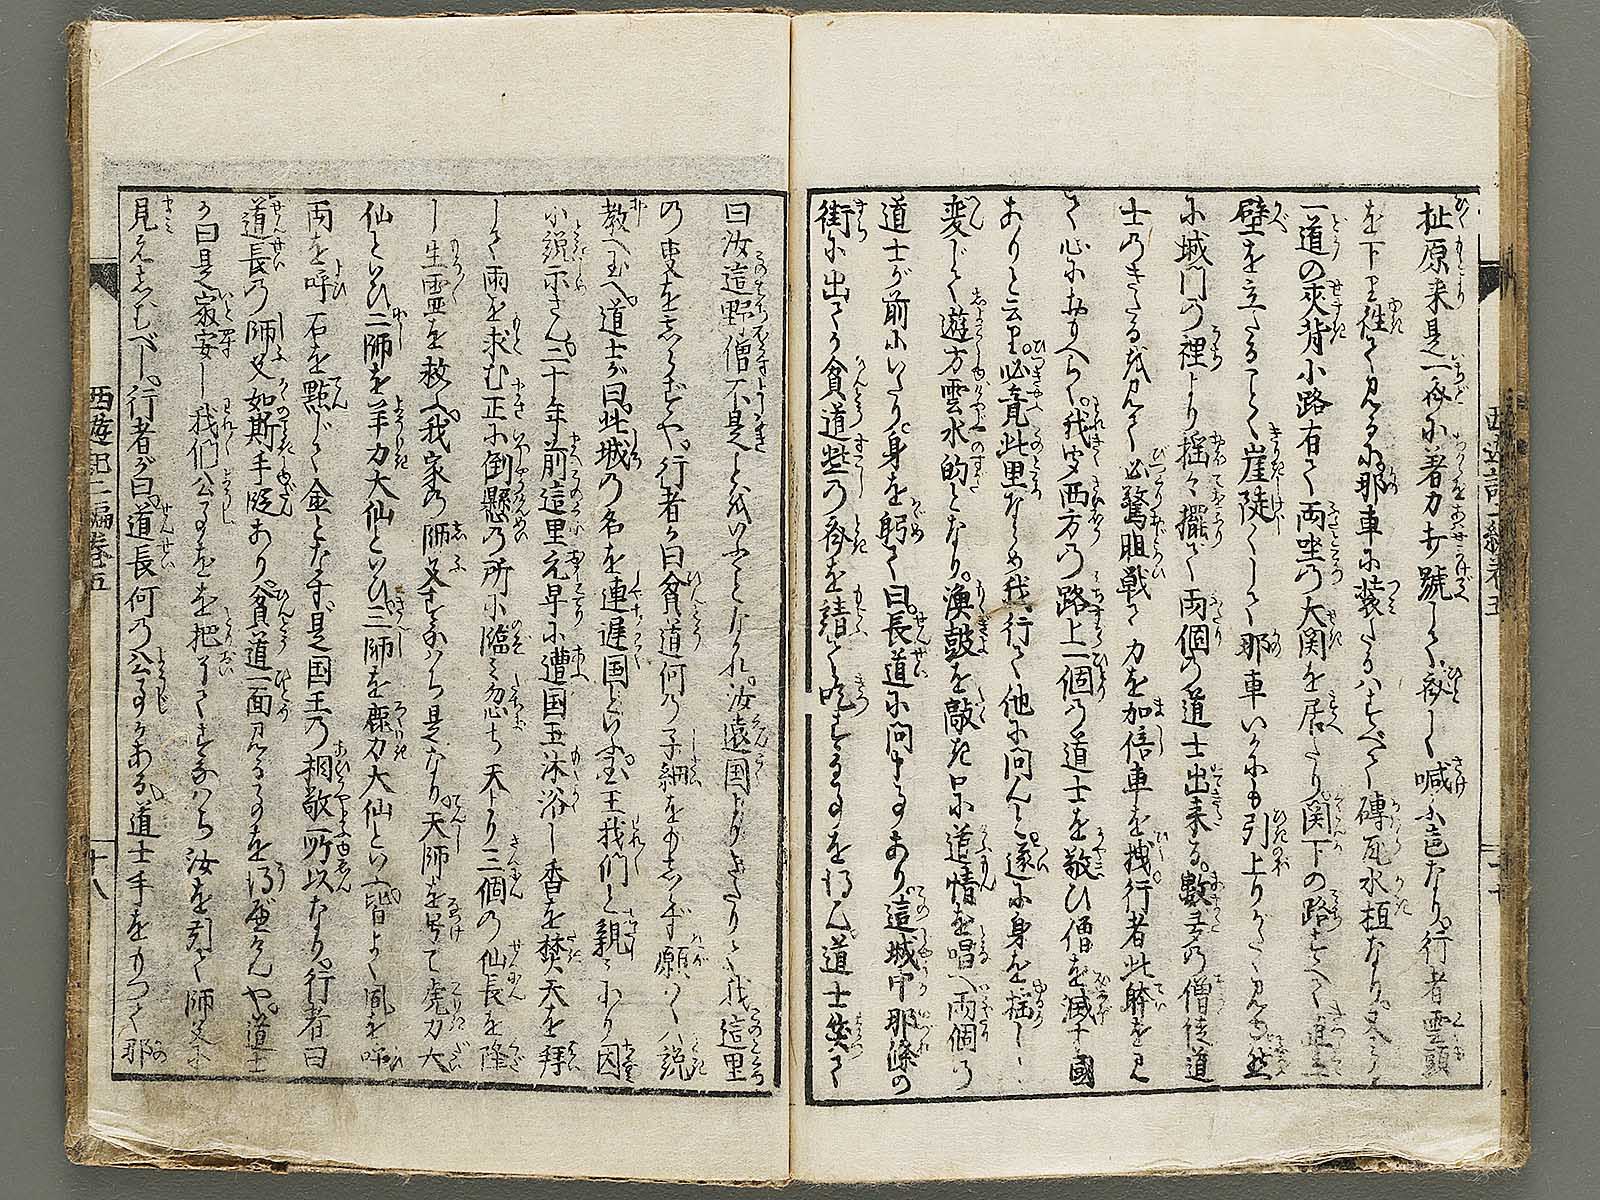 址原来是一斉に着力打號して斉しく喊ぶ色なり。行者雲頭
を下り往て見るに那車に装たるはすべて磚瓦水植なり。
一道の夾背小路有て両座の大関を居たり。関下の路すべて直立
壁を立たるごとく崖陡くして那車いかにも引上りがたく見る。然
に城門の裡より揺々擺て両個の道士出来る。数多の僧徒道
士のきたるを見て必驚胆戦て力を加倍車を拽。行者此躰を見
て心におもへらく。我聞西方の路上一個の道士を敬ひ僧を滅す國
ありと云り。必竟此里ならめ我行て他に問んと。遂に身を揺し
変じて遊方雲水的となり。漁鼓を敲き口に道情を唱へ両個の
道士が前にいたり。身を躬て曰。長道に問申事あり。這城中那條の
街に出てか貧道些の斉を請て吃する事を得ん。道士笑て
曰汝這野僧不是とはいふことなかれ。汝遠国よりきたりて我這里
の事をしらずや。行者が曰貧道何の子細をもしらず願くは説
教へ玉へ。道士が曰。此城の名を連遅国といふ。国王我們と親にあり因
に説示さん。二十年前這里亢旱に遭国王沐浴し香を焚天を拝
して雨を求む。正に倒懸の所に臨み忽ち天より三個の仙長を降
し生霊を救ふ。我家の師父すなはち是なり。天師を号て虎力大
仙といひ二師を羊力大仙といひ三師を鹿力大仙といふ。皆よく風を呼
雨を呼石を點じて金となす。是国王の相敬所以なり。行者曰
道長の師父如斯手段あり。貧道一面見る事を得べけんや。道士
が曰是最安し我們公事を把了てすなはち汝を引て師父に
見えしむべし。行者が曰。道長何の公事かある。道士手をもつて那
西遊記二編巻五
十八